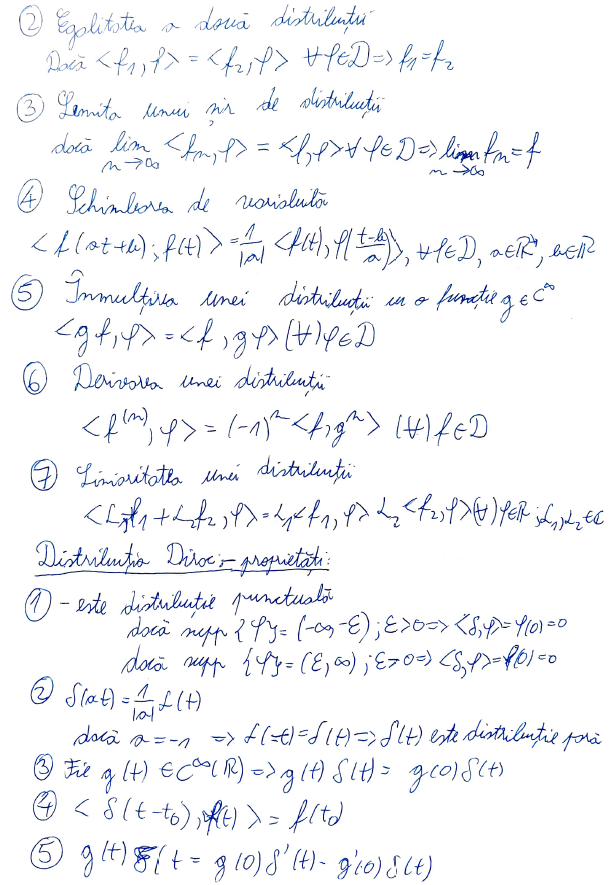 ② Egalitatea a două distribuții
Dacă <f₁, φ> = <f₂, φ> ∀φ∈D => f₁=f₂
③ Limita unui șir de distribuții
dacă lim n→∞ <fₙ, φ> = <f, φ> ∀ φ∈D => lim n→∞ fₙ = f
④ Schimbarea de variabilă
<f(at+b); f(t)> = 1/|a| <f(t), φ((t-b)/a)>, ∀φ∈D, a∈R*, b∈R
⑤ Înmulțirea unei distribuții cu o funcție g∈C^∞
<gf, φ> = <f, gφ> (∀)φ∈D
⑥ Derivarea unei distribuții
<f⁽ⁿ⁾, φ> = (-1)ⁿ <f, gⁿ> (∀) f∈D
⑦ Liniaritatea unei distribuții
<L₁f₁ + L₂f₂, φ> = L₁<f₁, φ> L₂<f₂, φ> (∀)φ∈R; L₁, L₂∈C
Distribuția Dirac - proprietăți:
① - este distribuție punctuală
dacă supp {φ} = (-∞, -ε); ε>0 => <δ, φ> = φ(0) = 0
dacă supp {φ} = (ε, ∞); ε>0 => <δ, φ> = φ(0) = 0
② δ(at) = 1/|a| δ(t)
dacă a = -1 => δ(-t) = δ(t) => δ(t) este distribuție pară
③ Fie g(t) ∈ C^∞(R) => g(t) δ(t) = g(0) δ(t)
④ <δ(t-t₀), f(t)> = f(t₀)
⑤ g(t) δ(t = g(0) δ'(t) - g'(0) δ(t)